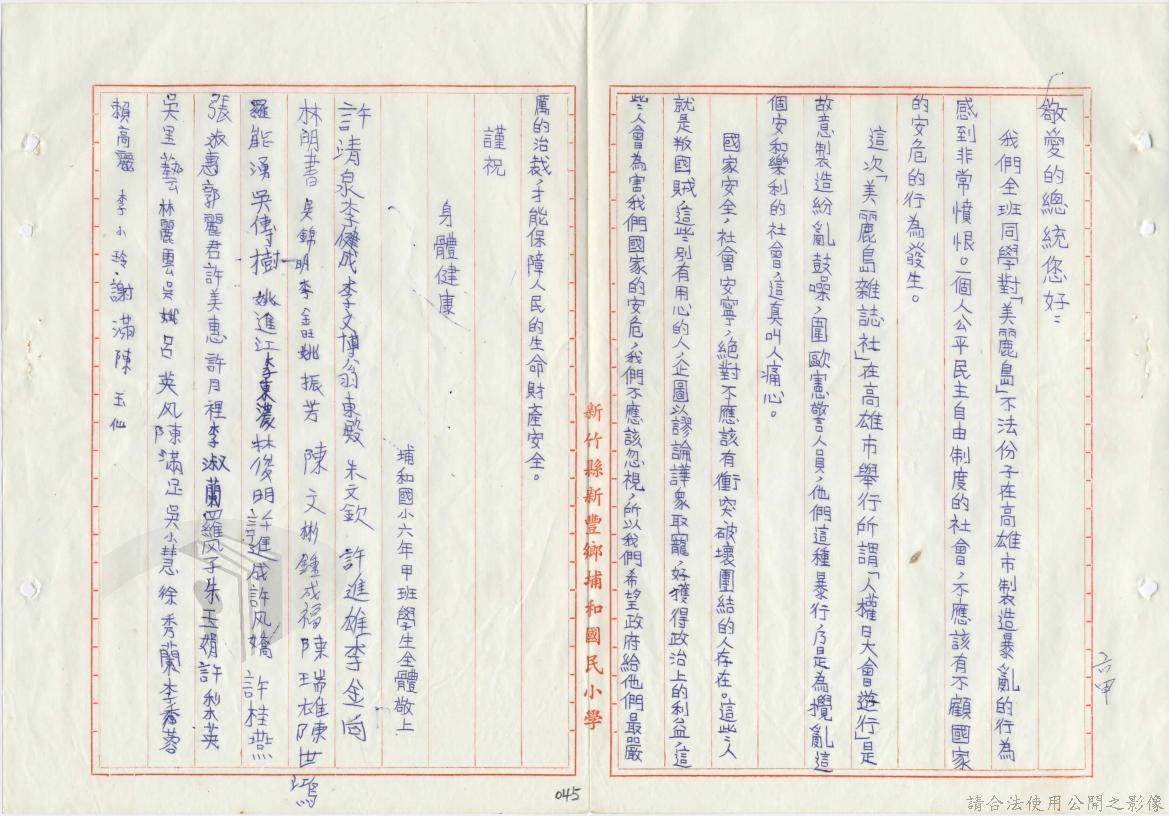 敬愛的總統您好：
我們全班同學對「美麗島」不法份子在高雄市制造暴亂的行為
感到非常憤恨。一個人公平民主自由制度的社會，不應該有不顧國家
的安危的行為發生。
這次「美麗島雜誌社」在高雄市舉行所謂「人權日大會遊行」是
故意製造紛亂鼓噪，圍毆憲警人員，他們這種暴行，乃是為攪亂這
個安和樂利的社會，這真叫人痛心。
國家安全，社會安寧，絕對不應該有衝突破壞團結的人存在。這些人
就是叛國賊，這些別有用心的人，企圖以謬論譁衆取寵，好獲得政治上的利益，這
些人會為害我們國家的安危，我們不應該忽視，所以我們希望政府給他們最嚴
六甲
新竹縣新豐鄉埔和國民小學
厲的治裁，才能保障人民的生命財產安全。
謹祝
身體健康
埔和國小六年甲班學生全體敬上
許靖泉 李健成 李文博 翁東殿 朱文欽 許進雄 李金
林明書 吳錦明 李金旺 姚振芳 陳文彬 鍾成福 陳瑞雄 陳世鴻
羅能湧 吳傳樹 姚進江 李東濃 林俊明 許進成 許风嬌 許桂燕
張淑惠 郭麗君 許美惠 許月裡 李淑蘭 羅风子 朱玉娟 許梨英
吳里藝 林麗雲 吳姚 呂英风 陳滿足 吳小慧 徐秀蘭 李秀蓉
賴高麗 李小玲 謝滿 陳玉仙
045
請合法使用公開之影像